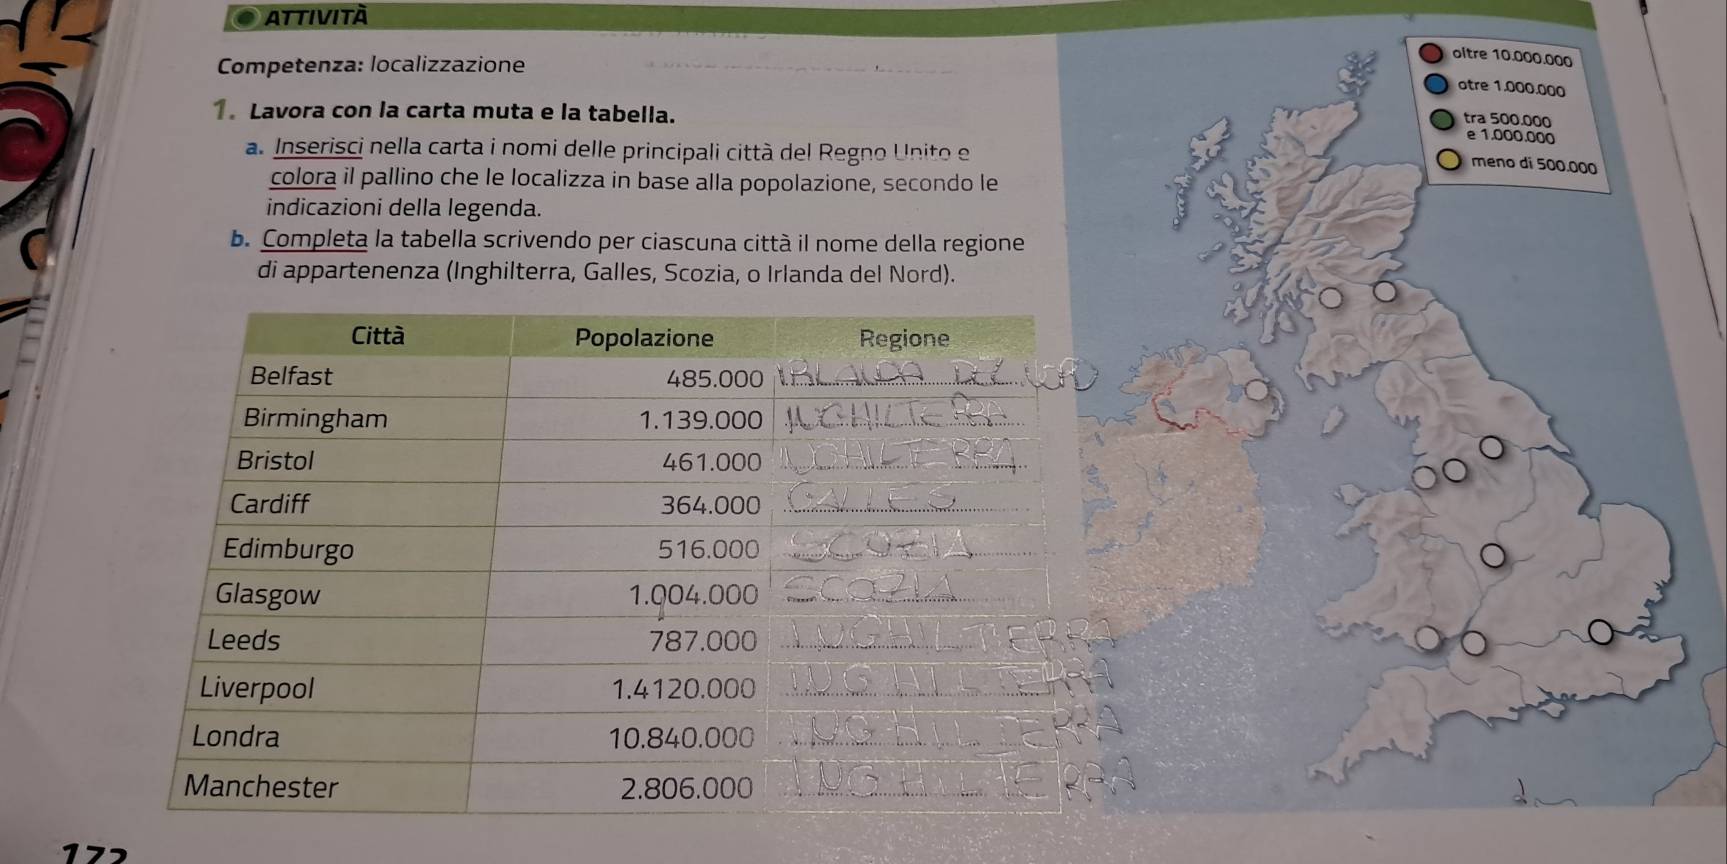 ATTIVITÀ
Competenza: localizzazione
1. Lavora con la carta muta e la tabella.
a. Inserisci nella carta i nomi delle principali città del Regno Unito e
colora il pallino che le localizza in base alla popolazione, secondo le
indicazioni della legenda.
b. Completa la tabella scrivendo per ciascuna città il nome della regione
di appartenenza (Inghilterra, Galles, Scozia, o Irlanda del Nord).
Città Popolazione Regione
Belfast 485.000 IRLANDA DEL NORD
Birmingham 1.139.000 INGHILTERRA
Bristol 461.000 INGHILTERRA
Cardiff 364.000 GALLES
Edimburgo 516.000 SCOZIA
Glasgow 1.004.000 SCOZIA
Leeds 787.000 INGHILTERRA
Liverpool 1.4120.000 INGHILTERRA
Londra 10.840.000 INGHILTERRA
Manchester 2.806.000 INGHILTERRA
oltre 10.000.000
otre 1.000.000
tra 500.000
e 1.000.000
meno di 500.000
172